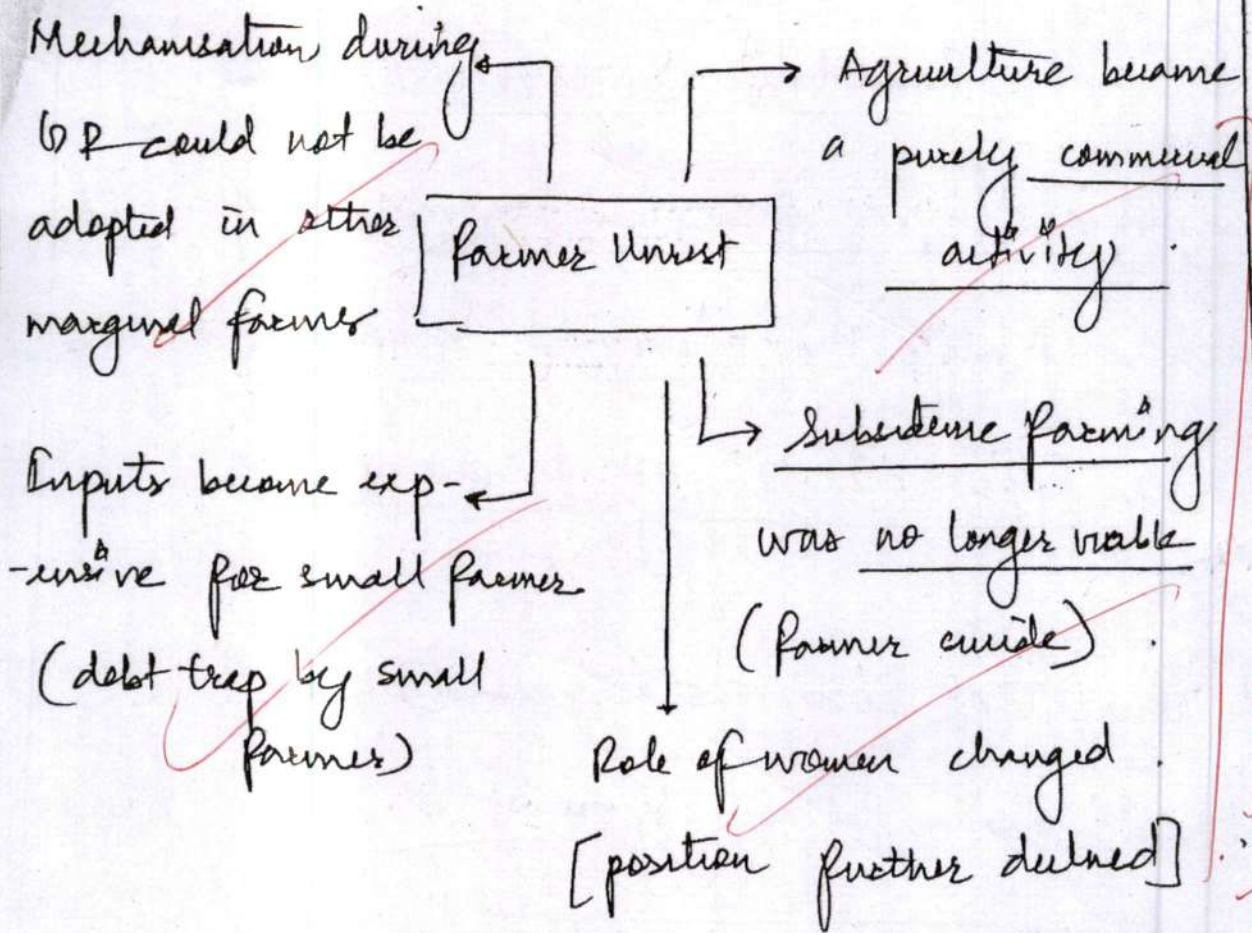 Mechanisation during
GR could not be
adopted in other
marginal farms
Agriculture became
a purely commercial
activity.
Farmer Unrest
Inputs became exp-
-ensive for small farmer
(debt trap by small
farmer)
Subsistence farming
was no longer viable
(farmer suicide).
Role of women changed.
[position further declined]